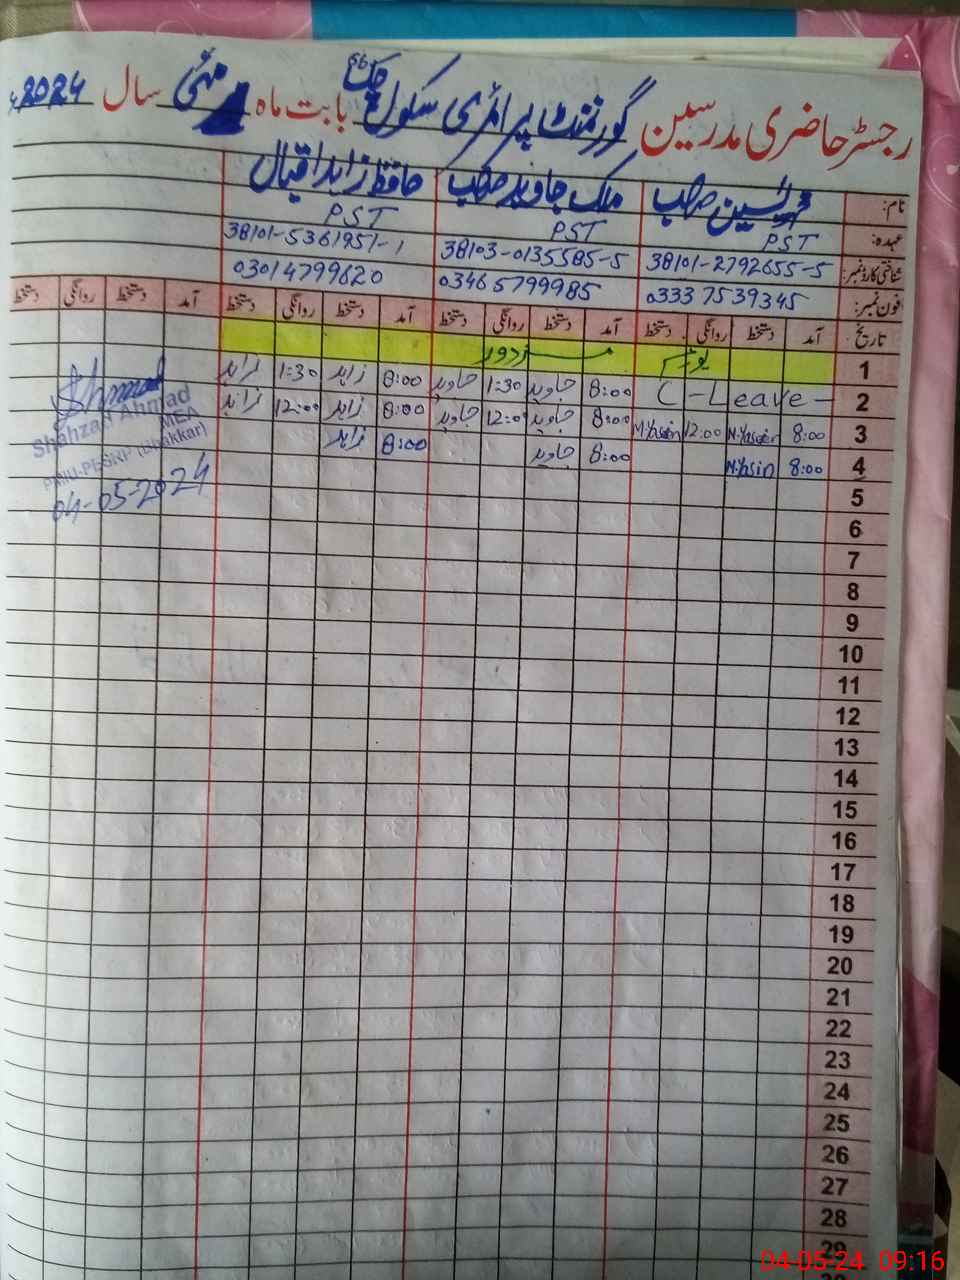 رجسٹر حاضری مدرسین گورنمنٹ پرائمری سکول چک 56 بابت ماہ مئی سال 2024ء
نام: محمد یٰسین صاحب ملک جاوید صاحب حافظ زاہد اقبال
عہدہ: PST PST PST
شناختی کارڈ نمبر: 38101-2792655-5 38103-0135585-5 38101-5361951-1
فون نمبر: 0333 7539345 0346 5799985 03014799620
تاریخ آمد دستخط روانگی دستخط آمد دستخط روانگی دستخط آمد دستخط روانگی دستخط آمد دستخط روانگی دستخط
1 یوم مزدور
2 C - Leave - 8:00 جاوید 1:30 جاوید 8:00 زاہد 1:30 زاہد
3 8:00 M.Yasin 12:00 M.Yasin 8:00 جاوید 12:00 جاوید 8:00 زاہد 12:00 زاہد
4 8:00 M.Yasin 8:00 جاوید 8:00 زاہد
Shahzad Ahmad
MEA
PMIU-PESRP (Bhakkar)
04-05-2024
5
6
7
8
9
10
11
12
13
14
15
16
17
18
19
20
21
22
23
24
25
26
27
28
29
04-05-24 09:16